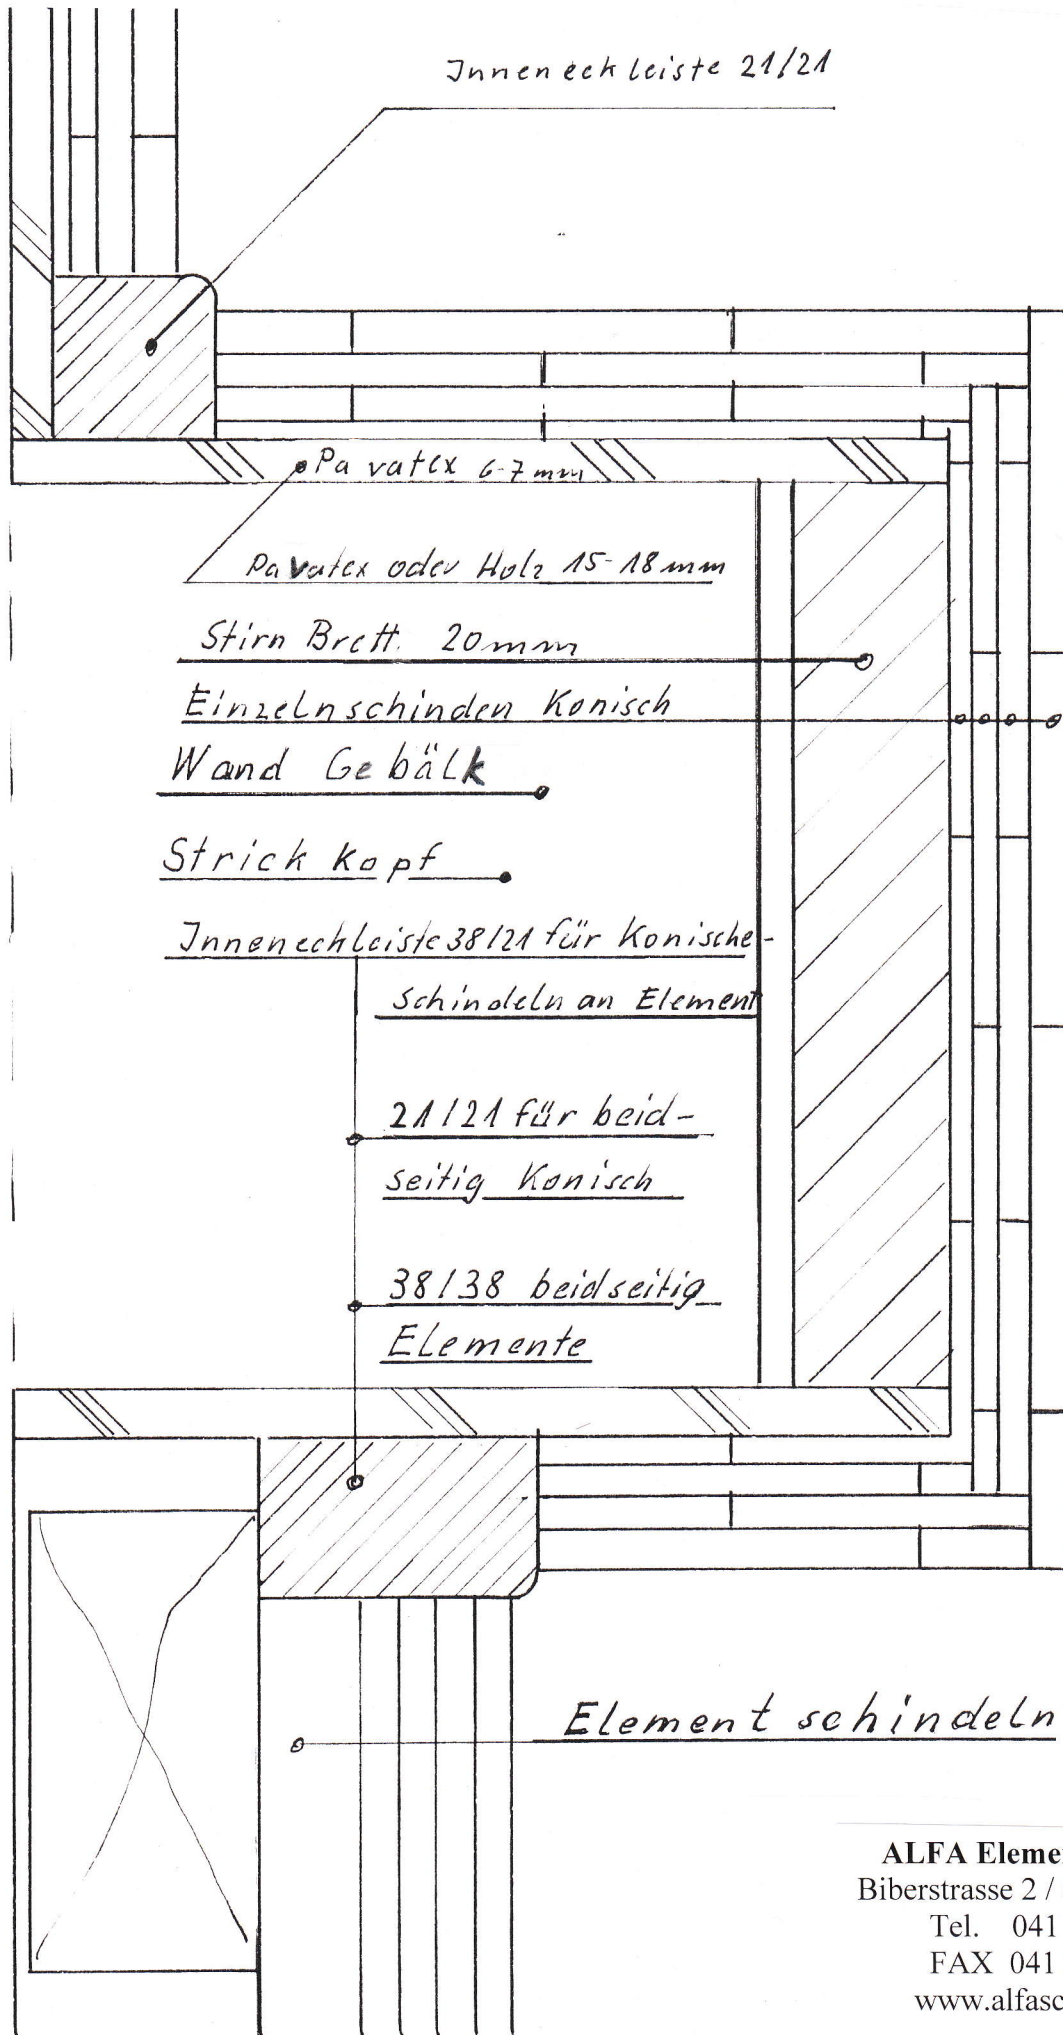 Inneneckleiste 21/21
Pavatex 6-7mm
Pavatex oder Holz 15-18mm
Stirn Brett. 20mm
Einzelnschinden Konisch
Wand Gebälk
Strickkopf
Innenechleiste 38/21 für Konische-
Schindeln an Element
21/21 für beid-
seitig Konisch
38/38 beidseitig
Elemente
Element schindeln
ALFA Eleme
Biberstrasse 2 /
Tel. 041
FAX 041
www.alfasc